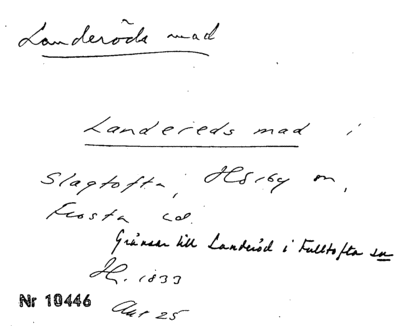 Landeröds mad
Landereds mad i
Slagtofta, Hörby sn,
Frosta hd.
Gränsar till Landeröd i Fulltofta sn
H. 1833
Akt 25
Nr 10446